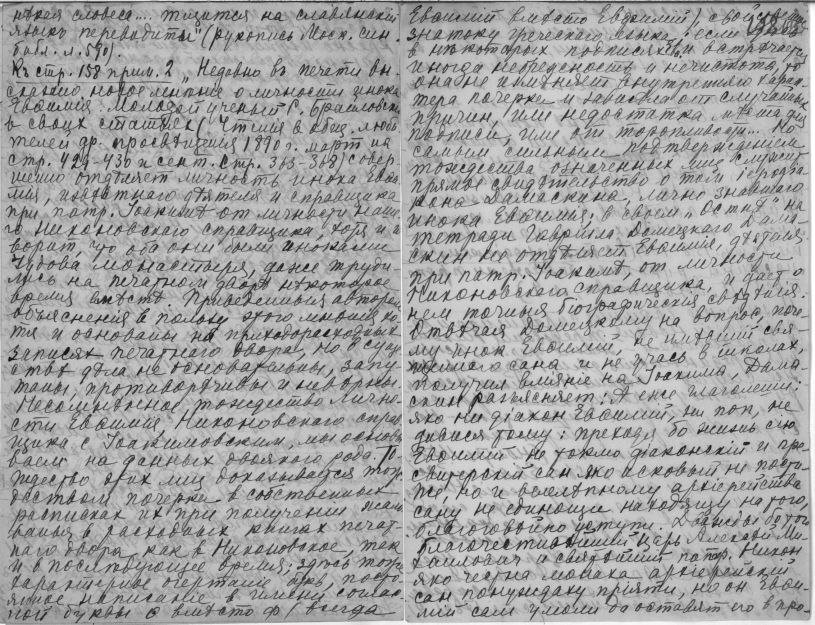 нѣкая словеса.... тщится на славянскій
языкъ переводити" (рукопись Моск. син.
библ. л. 590).
Къ стр. 158 прим. 2 „Недавно въ печати вы-
сказано новое мнѣніе о личности инока
Евѳимія. Молодой ученый С. Браиловскій
в своих статьях (Чтенія в общ. люби-
телей др. просвѣщенія 1890 г. март на
стр. 429-430 и сент. стр. 365-368) совер-
шенно отдѣляет личность инока Евѳи-
мія, извѣстнаго дѣятеля и справщика
при патр. Іоакимѣ от личности наше-
го Никоновскаго справщика, хотя и г
оворит, что оба они были иноками
Чудова монастыря, даже труди-
лись на печатном дворѣ нѣкоторое
время вмѣстѣ. Приводимыя автором
объясненія в пользу этого мнѣнія хо-
тя и основаны на приходорасходных
записях печатнаго двора, но в сущ-
ествѣ дѣла не основательны, запу-
таны, противорѣчивы и невѣрны.
Несомнѣнное тождество лично-
сти Евѳимія, Никоновскаго справ-
щика с Іоакимовским, мы основы-
ваем на данных двоякаго рода. То-
ждество этих лиц доказывается тож-
деством почерка в собственных
расписках их при получении жало-
ванья в расходных книгах печат-
наго двора как в Никоновское, так
и в послѣдующее время; здѣсь тоже
характерное очертаніе букв, посто-
янное написаніе в имени соглас-
ной буквы в вмѣсто ф (всегда
Евѳимій вмѣсто Евфимій), свой
знатоку греческаго языка; если
в нѣкоторых подписях и встрѣчается
иногда небрежность и нечистота, то
она не измѣняет внутренняго харак-
тера почерка и зависѣла от случайных
причин, или недостатка мѣста для
подписи, или от торопливости... Но
самым сильным подтвержденіем
тождества означенных лиц служит
прямое свидѣтельство о том іеродіа-
кона Дамаскина, лично знавшаго
инока Евѳимія; в своем „Отвѣтѣ" на
тетради Гавріила Домецкаго Дама-
скин не отдѣляет Евѳимія, дѣятеля
при патр. Іоакимѣ, от личности
Никоновскаго справщика, и дает о
нем точныя біографическія свѣдѣнія.
Отвѣчая Домецкому на вопрос, поче-
му инок Евѳимій, не имѣвшій свя-
щеннаго сана и не учась в школах,
получил вліяніе на Іоакима, Дама-
скин разъясняет: А еже глаголеши:
яко ни діакон Евѳимій, ни поп, не
дивися тому: преходя бо жизнь сію
Евѳимій не токмо діаконскій и пре-
свитерскій сан яко исковый не пости-
же, но и великому архіерейства
сану не единощи находящу на того,
благоговѣйно уступи. Дважды бо той
благочестивѣйшій царь Алексѣй Ми-
хаилович и святѣйшій патр. Никон
яко честна монаха архіерейскій
сан понуждаху пріяти, но он Евѳи-
мій сам умоли да оставят его в про-